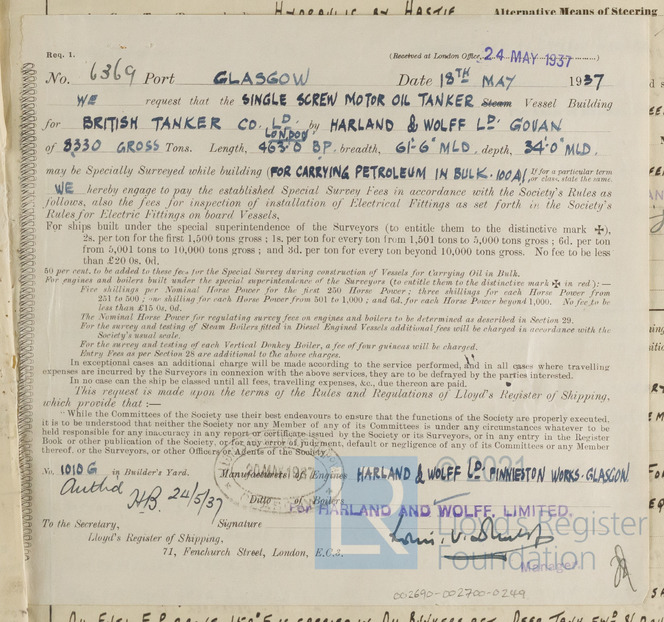 HYDRAULIC BY HASTIE Alternative Means of Steering
Req. 1. (Received at London Office, 24 MAY 1937)
No. 6369 Port GLASGOW Date 18TH MAY 1937
WE request that the SINGLE SCREW MOTOR OIL TANKER Steam Vessel Building
for BRITISH TANKER CO. LD. LONDON by HARLAND & WOLFF LD. GOVAN
of 8330 GROSS Tons. Length, 463'0" BP. breadth, 61'-6" MLD. depth, 34'0" MLD.
may be Specially Surveyed while building (FOR CARRYING PETROLEUM IN BULK. 100A1. If for a particular term or class, state the same.
WE hereby engage to pay the established Special Survey Fees in accordance with the Society's Rules as
follows, also the fees for inspection of installation of Electrical Fittings as set forth in the Society's
Rules for Electric Fittings on board Vessels,
For ships built under the special superintendence of the Surveyors (to entitle them to the distinctive mark ✠),
2s. per ton for the first 1,500 tons gross ; 1s. per ton for every ton from 1,501 tons to 5,000 tons gross ; 6d. per ton
from 5,001 tons to 10,000 tons gross ; and 3d. per ton for every ton beyond 10,000 tons gross. No fee to be less
than £20 0s. 0d.
50 per cent. to be added to these fees for the Special Survey during construction of Vessels for Carrying Oil in Bulk.
For engines and boilers built under the special superintendence of the Surveyors (to entitle them to the distinctive mark ✠ in red) :—
Five shillings per Nominal Horse Power for the first 250 Horse Power ; three shillings for each Horse Power from
251 to 500 ; one shilling for each Horse Power from 501 to 1,000 ; and 6d. for each Horse Power beyond 1,000. No fee to be
less than £15 0s. 0d.
The Nominal Horse Power for regulating survey fees on engines and boilers to be determined as described in Section 29.
For the survey and testing of Steam Boilers fitted in Diesel Engined Vessels additional fees will be charged in accordance with the
Society's usual scale.
For the survey and testing of each Vertical Donkey Boiler, a fee of four guineas will be charged.
Entry Fees as per Section 28 are additional to the above charges.
In exceptional cases an additional charge will be made according to the service performed, and in all cases where travelling
expenses are incurred by the Surveyors in connexion with the above services, they are to be defrayed by the parties interested.
In no case can the ship be classed until all fees, travelling expenses, &c., due thereon are paid.
This request is made upon the terms of the Rules and Regulations of Lloyd's Register of Shipping,
which provide that :—
"While the Committees of the Society use their best endeavours to ensure that the functions of the Society are properly executed,
it is to be understood that neither the Society nor any Member of any of its Committees is under any circumstances whatever to be
held responsible for any inaccuracy in any report or certificate issued by the Society or its Surveyors, or in any entry in the Register
Book or other publication of the Society, or for any error of judgment, default or negligence of any of its Committees or any Member
thereof, or the Surveyors, or other Officers or Agents of the Society."
No. 1010 G in Builder's Yard. Manufacturers of Engines HARLAND & WOLFF LD. FINNIESTON WORKS - GLASGOW
20 MAY 1937
© 2021
Authd H.B. 24/5/37 Ditto of Boilers
FOR HARLAND AND WOLFF, LIMITED.
To the Secretary, Signature
Lloyd's Register of Shipping,
71, Fenchurch Street, London, E.C.3.
Manager
LR Lloyd's Register
Foundation
002690-002700-0249